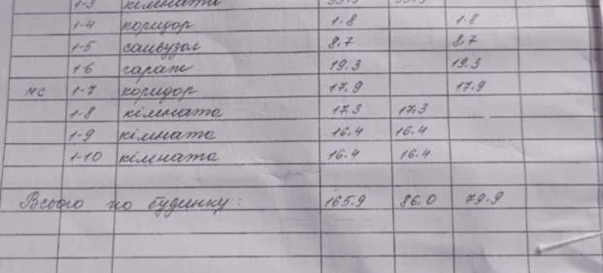 1-3 кімната
1-4 коридор 1.8 1.8
1-5 санвузол 8.7 8.7
1-6 гараж 19.3 19.3
МС 1-7 коридор 17.9 17.9
1-8 кімната 17.3 17.3
1-9 кімната 16.4 16.4
1-10 кімната 16.4 16.4
Всього по будинку: 165.9 86.0 79.9